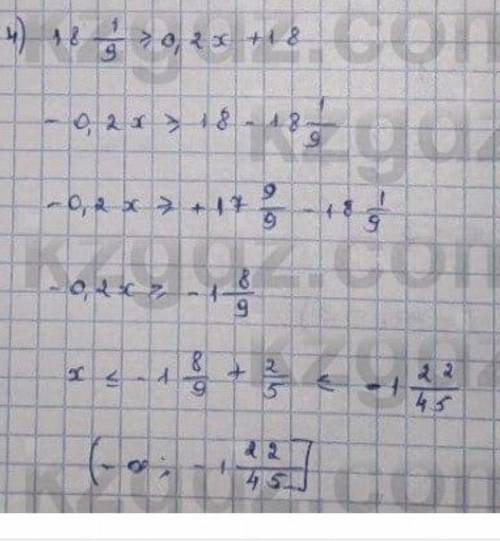 4) 18 1/9 ≥ 0,2x + 18
- 0,2x ≥ 18 - 18 1/9
- 0,2x ≥ + 17 9/9 - 18 1/9
- 0,2x ≥ - 1 8/9
x ≤ - 1 8/9 + 2/5 ≤ - 1 22/45
(- ∞; - 1 22/45]
kzgdz.com